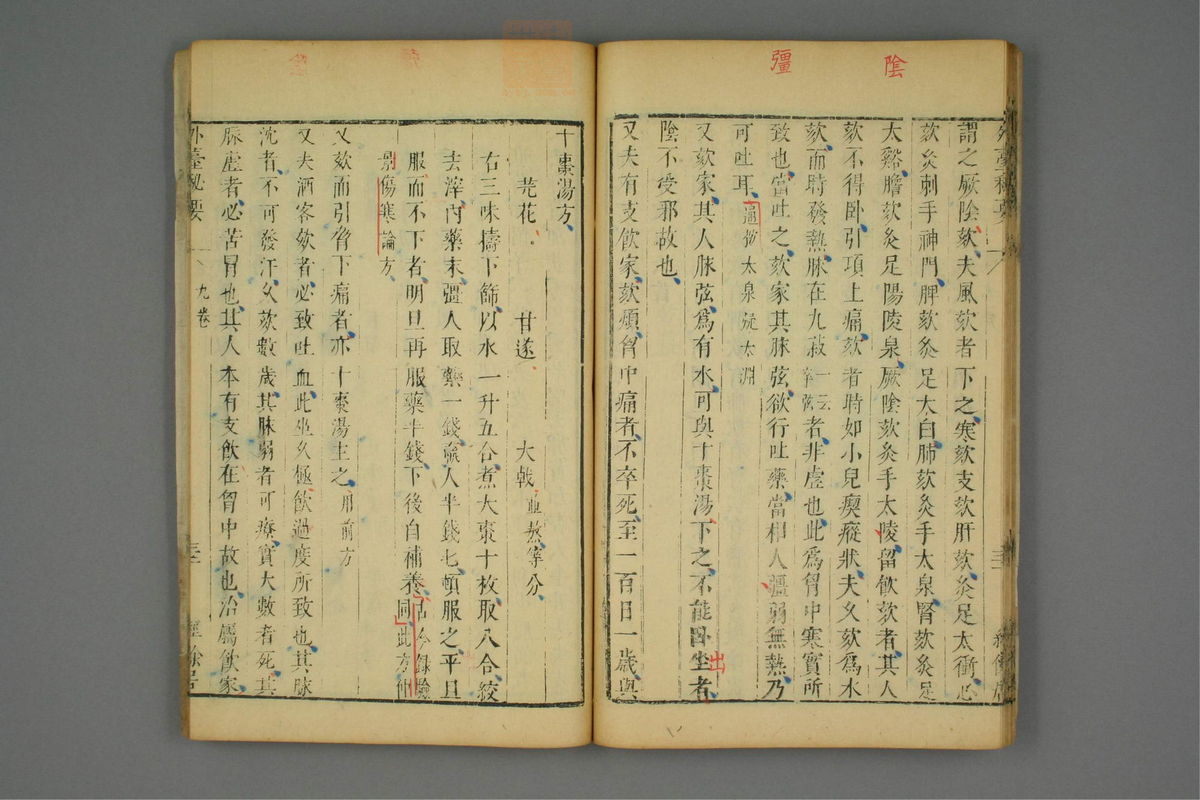 彊
陰
謂之厥陰欬夫風欬者下之寒欬支欬肝欬灸足太衝心
欬灸刺手神門脾欬灸足太白肺欬灸手太泉腎欬灸足
太谿膽欬灸足陽陵泉厥陰欬灸手太陵留飲欬者其人
欬不得臥引項上痛欬者時如小兒瘈瘲狀夫久欬為水
欬而時發熱脉在九菽一云卒弦者非虛也此為胷中寒實所
致也當吐之欬家其脉弦欲行吐藥當相人彊弱無熱乃
可吐耳太泉疑太淵
又欬家其人脉弦為有水可與十棗湯下之不能臥坐者
陰不受邪故也
出
又夫有支飲家欬煩胷中痛者不卒死至一百日一歲與
十棗湯方
芫花 甘遂 大戟並熬等分
右三味擣下篩以水一升五合煮大棗十枚取八合絞
去滓內藥末彊人取藥一錢羸人半錢匕頓服之平旦
服而不下者明旦再服藥半錢下後自補養古今錄驗同此方仲
景傷寒論方
又欬而引脅下痛者亦十棗湯主之用前方
又夫酒客欬者必致吐血此坐久極飲過度所致也其脉
沈者不可發汗久欬數歲其脉弱者可療實大數者死其
脉虛者必苦冒也其人本有支飲在胷中故也治屬飲家
外臺秘要
九卷
三
經餘居